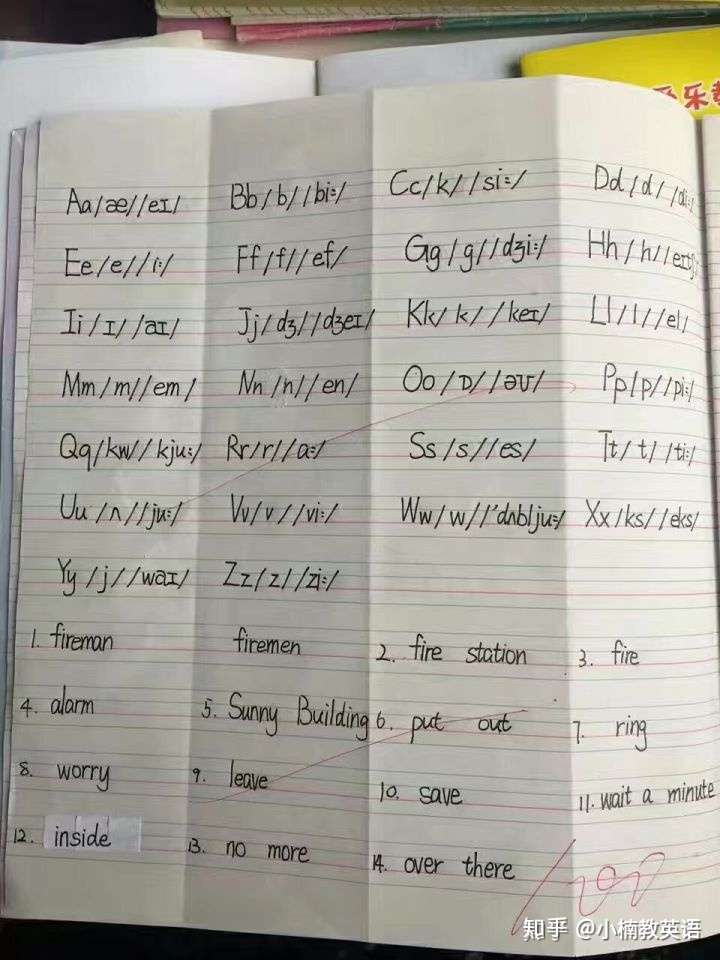 乐
Aa /æ/ /eɪ/ Bb /b/ /bi:/ Cc /k/ /si:/ Dd /d/ /di:/
Ee /e/ /i:/ Ff /f/ /ef/ Gg /g/ /dʒi:/ Hh /h/ /eɪtʃ/
Ii /ɪ/ /aɪ/ Jj /dʒ/ /dʒeɪ/ Kk /k/ /keɪ/ Ll /l/ /el/
Mm /m/ /em/ Nn /n/ /en/ Oo /ɒ/ /əʊ/ Pp /p/ /pi:/
Qq /kw/ /kju:/ Rr /r/ /a:/ Ss /s/ /es/ Tt /t/ /ti:/
Uu /ʌ/ /ju:/ Vv /v/ /vi:/ Ww /w/ /'dʌblju:/ Xx /ks/ /eks/
Yy /j/ /waɪ/ Zz /z/ /zi:/
1. fireman firemen 2. fire station 3. fire
4. alarm 5. Sunny Building 6. put out 7. ring
8. worry 9. leave 10. save 11. wait a minute
12. inside 13. no more 14. over there
100
知乎 @小楠教英语